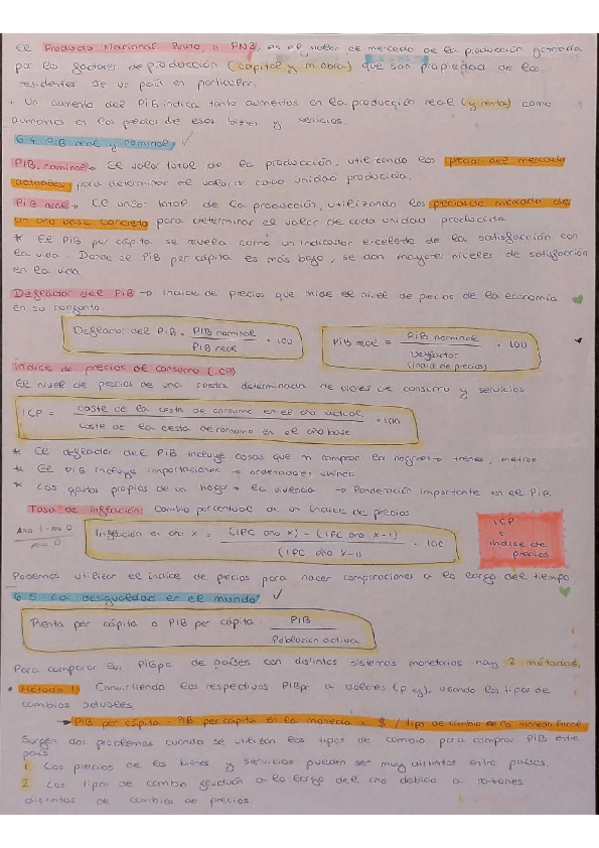 El Producto Nacional Bruto, o PNB, es el valor de mercado de la producción generada
por los factores de producción (capital y m.obra) que son propiedad de los
residentes de un país en particular.
· Un aumento del PIB indica tanto aumentos en la producción real (y renta) como
aumentos en los precios de esos bienes y servicios.
6.4. PIB real y nominal ✓
PIB. nominal → El valor total de la producción, utilizando los precios del mercado
actuales para determinar el valor de cada unidad producida.
PIB real → El valor total de la producción, utilizando los precios de mercado de
un año base concreto para determinar el valor de cada unidad producida
* El PIB per cápita se revela como un indicador excelente de la satisfacción con
la vida. Donde el PIB per cápita es más bajo, se dan mayores niveles de satisfacción
en la vida
Deflactor del PIB → índice de precios que mide el nivel de precios de la economía
en su conjunto.
Deflactor del PIB = PIB nominal / PIB real · 100
PIB real = PIB nominal / Deflactor (índice de precios) · 100
Índice de precios de consumo (ICP)
El nivel de precios de una cesta determinada de bienes de consumo y servicios
ICP = coste de la cesta de consumo en el año actual / coste de la cesta de consumo en el año base · 100
* El deflactor del PIB incluye cosas que n compran los hogares → trenes, metros
* El PIB incluye importaciones → ordenadores chinos
* Los gastos propios de un hogar → la vivienda → Ponderación importante en el PIB
Tasa de inflación: Cambio porcentual de un índice de precios
Inflación en año x = (IPC año x) - (IPC año x-1) / (IPC año x-1) · 100
ICP
índice de
precios
Podemos utilizar el índice de precios para hacer comparaciones a lo largo del tiempo
6.5. La desigualdad en el mundo ✓
Renta per cápita o PIB per cápita = PIB / Población activa
Para comparar los PIBpc de países con distintos sistemas monetarios hay 2 métodos.
· Método 1: Convirtiendo los respectivos PIBpc a dólares (p ej), usando los tipos de
cambios actuales
→ PIB per cápita = PIB per cápita en la moneda = $ / tipo de cambio en la moneda local
Surgen dos problemas cuando se utilizan los tipos de cambio para comprar PIB entre
país
1. Los precios de los bienes y servicios pueden ser muy distintos entre países.
2. Los tipos de cambio fluctúan a lo largo del año debido a razones
distintas de cambios de precios